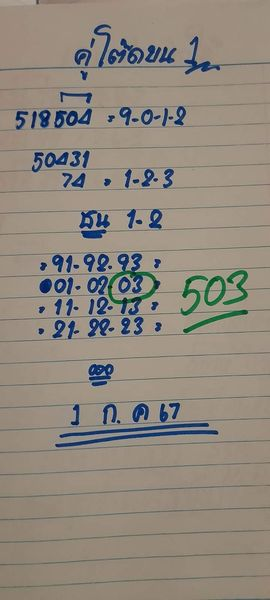 คู่โต๊ดบน 1
518504 = 9-0-1-2
50431
74 = 1-2-3
ชน 1-2
=91-92-93=
01-02-03 503
=11-12-13=
=21-22-23=
1 ก.ค 67